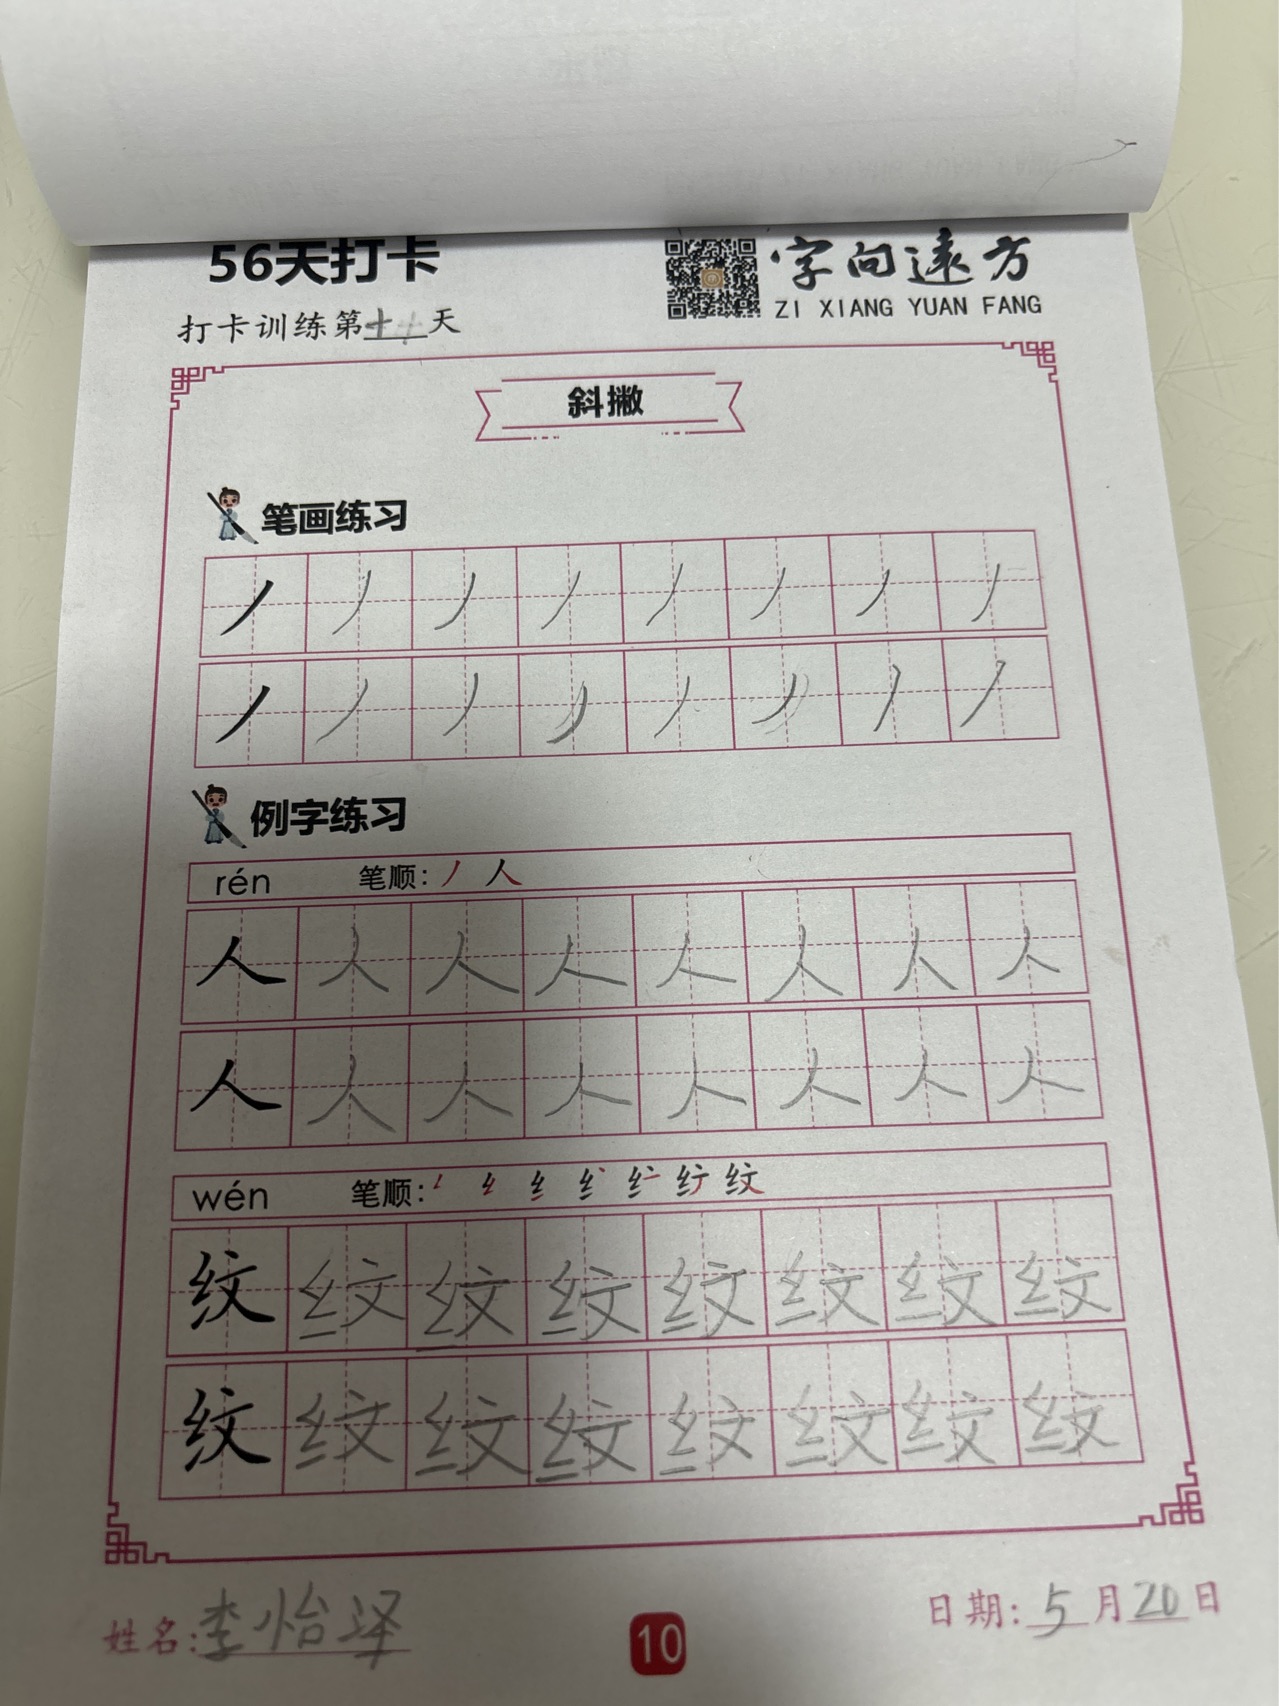 56天打卡
字向远方
ZI XIANG YUAN FANG
打卡训练第十天
斜撇
笔画练习
丿丿丿丿丿丿丿丿
丿丿丿丿丿丿丿丿
例字练习
rén 笔顺：丿 人
人人人人人人人人
人人人人人人人人
wén 笔顺：
纹
纹纹纹纹纹纹纹纹
纹纹纹纹纹纹纹纹
姓名：李怡泽
10
日期：5月20日